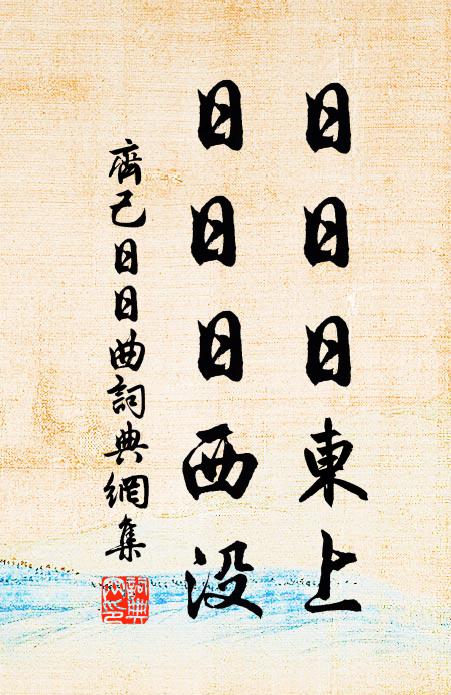 日日日東上
日日日西没
齊己日日曲詞典網集